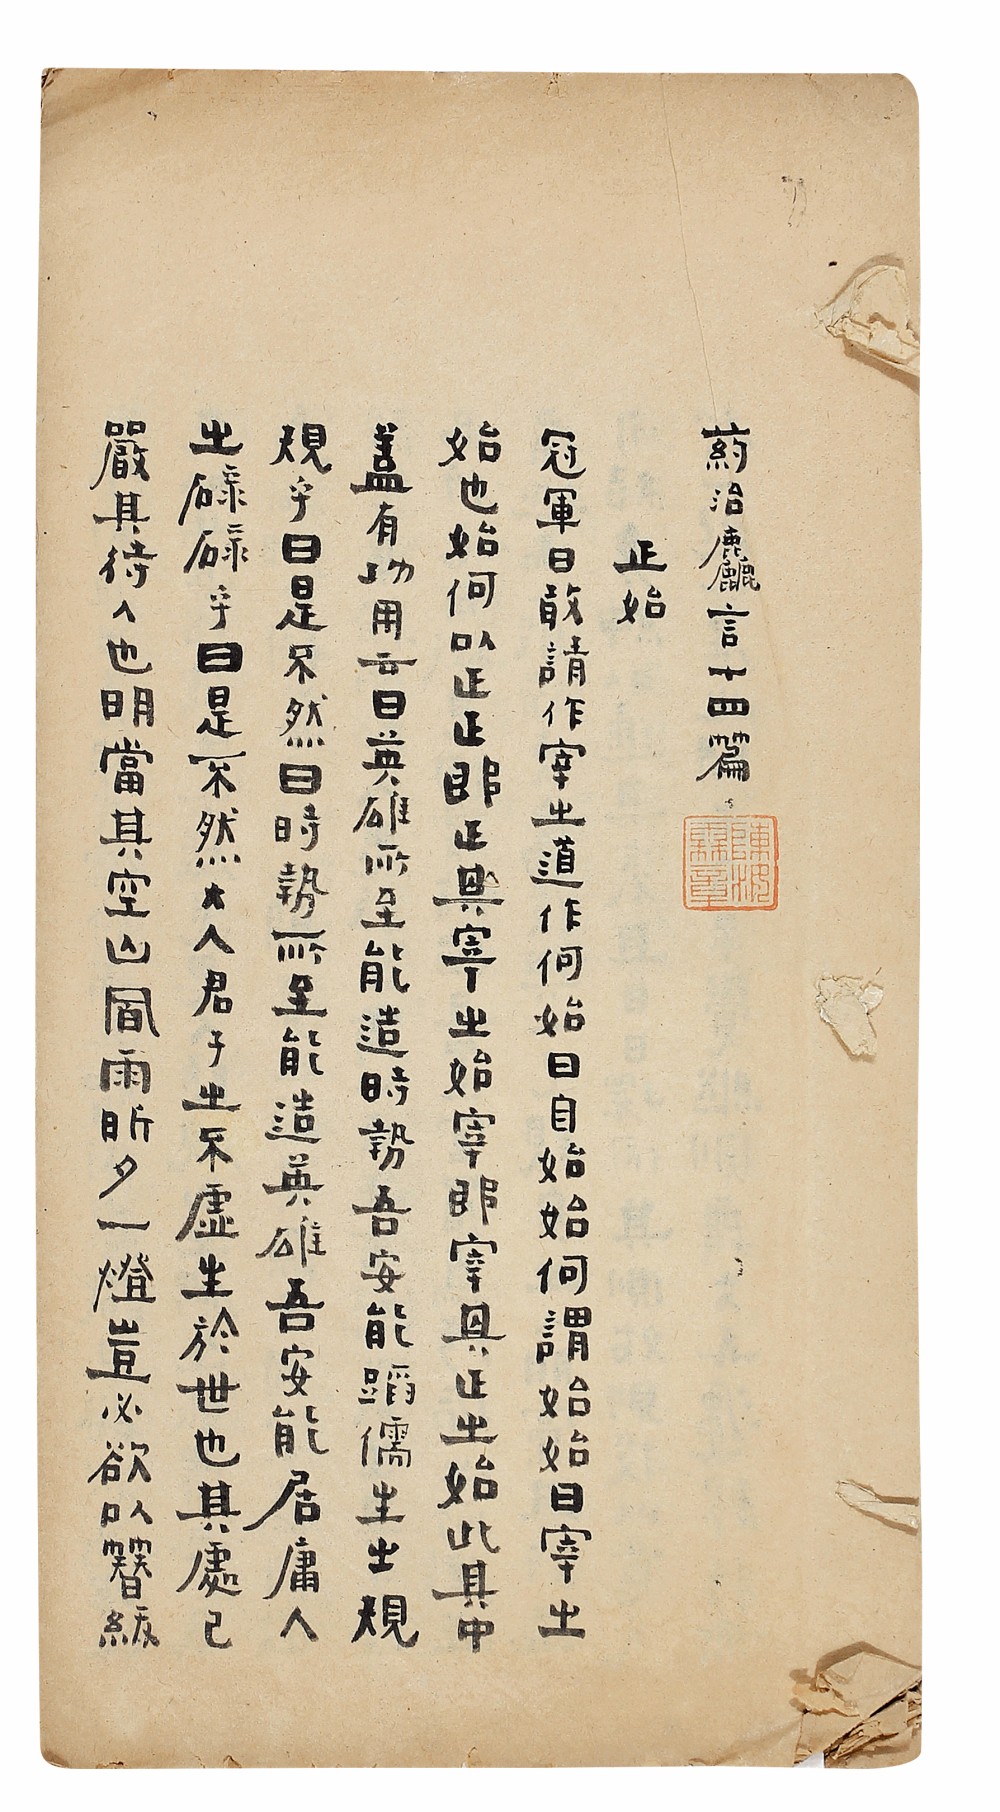 葯治麤言十四篇
正始
冠軍曰敢請作宰㞢道作何始曰自始始何謂始始曰宰㞢
始也始何以正正即正具宰㞢始宰即宰具正㞢始此其中
蓋有功用云曰英雄所至能造時勢吾安能蹈儒生㞢規
規乎曰是不然曰時勢所至能造英雄吾安能居庸人
㞢碌碌乎曰是不然大人君子㞢不虛生於世也其處己
嚴其待人也明當其空山風雨昕夕一燈豈必欲以簪紱